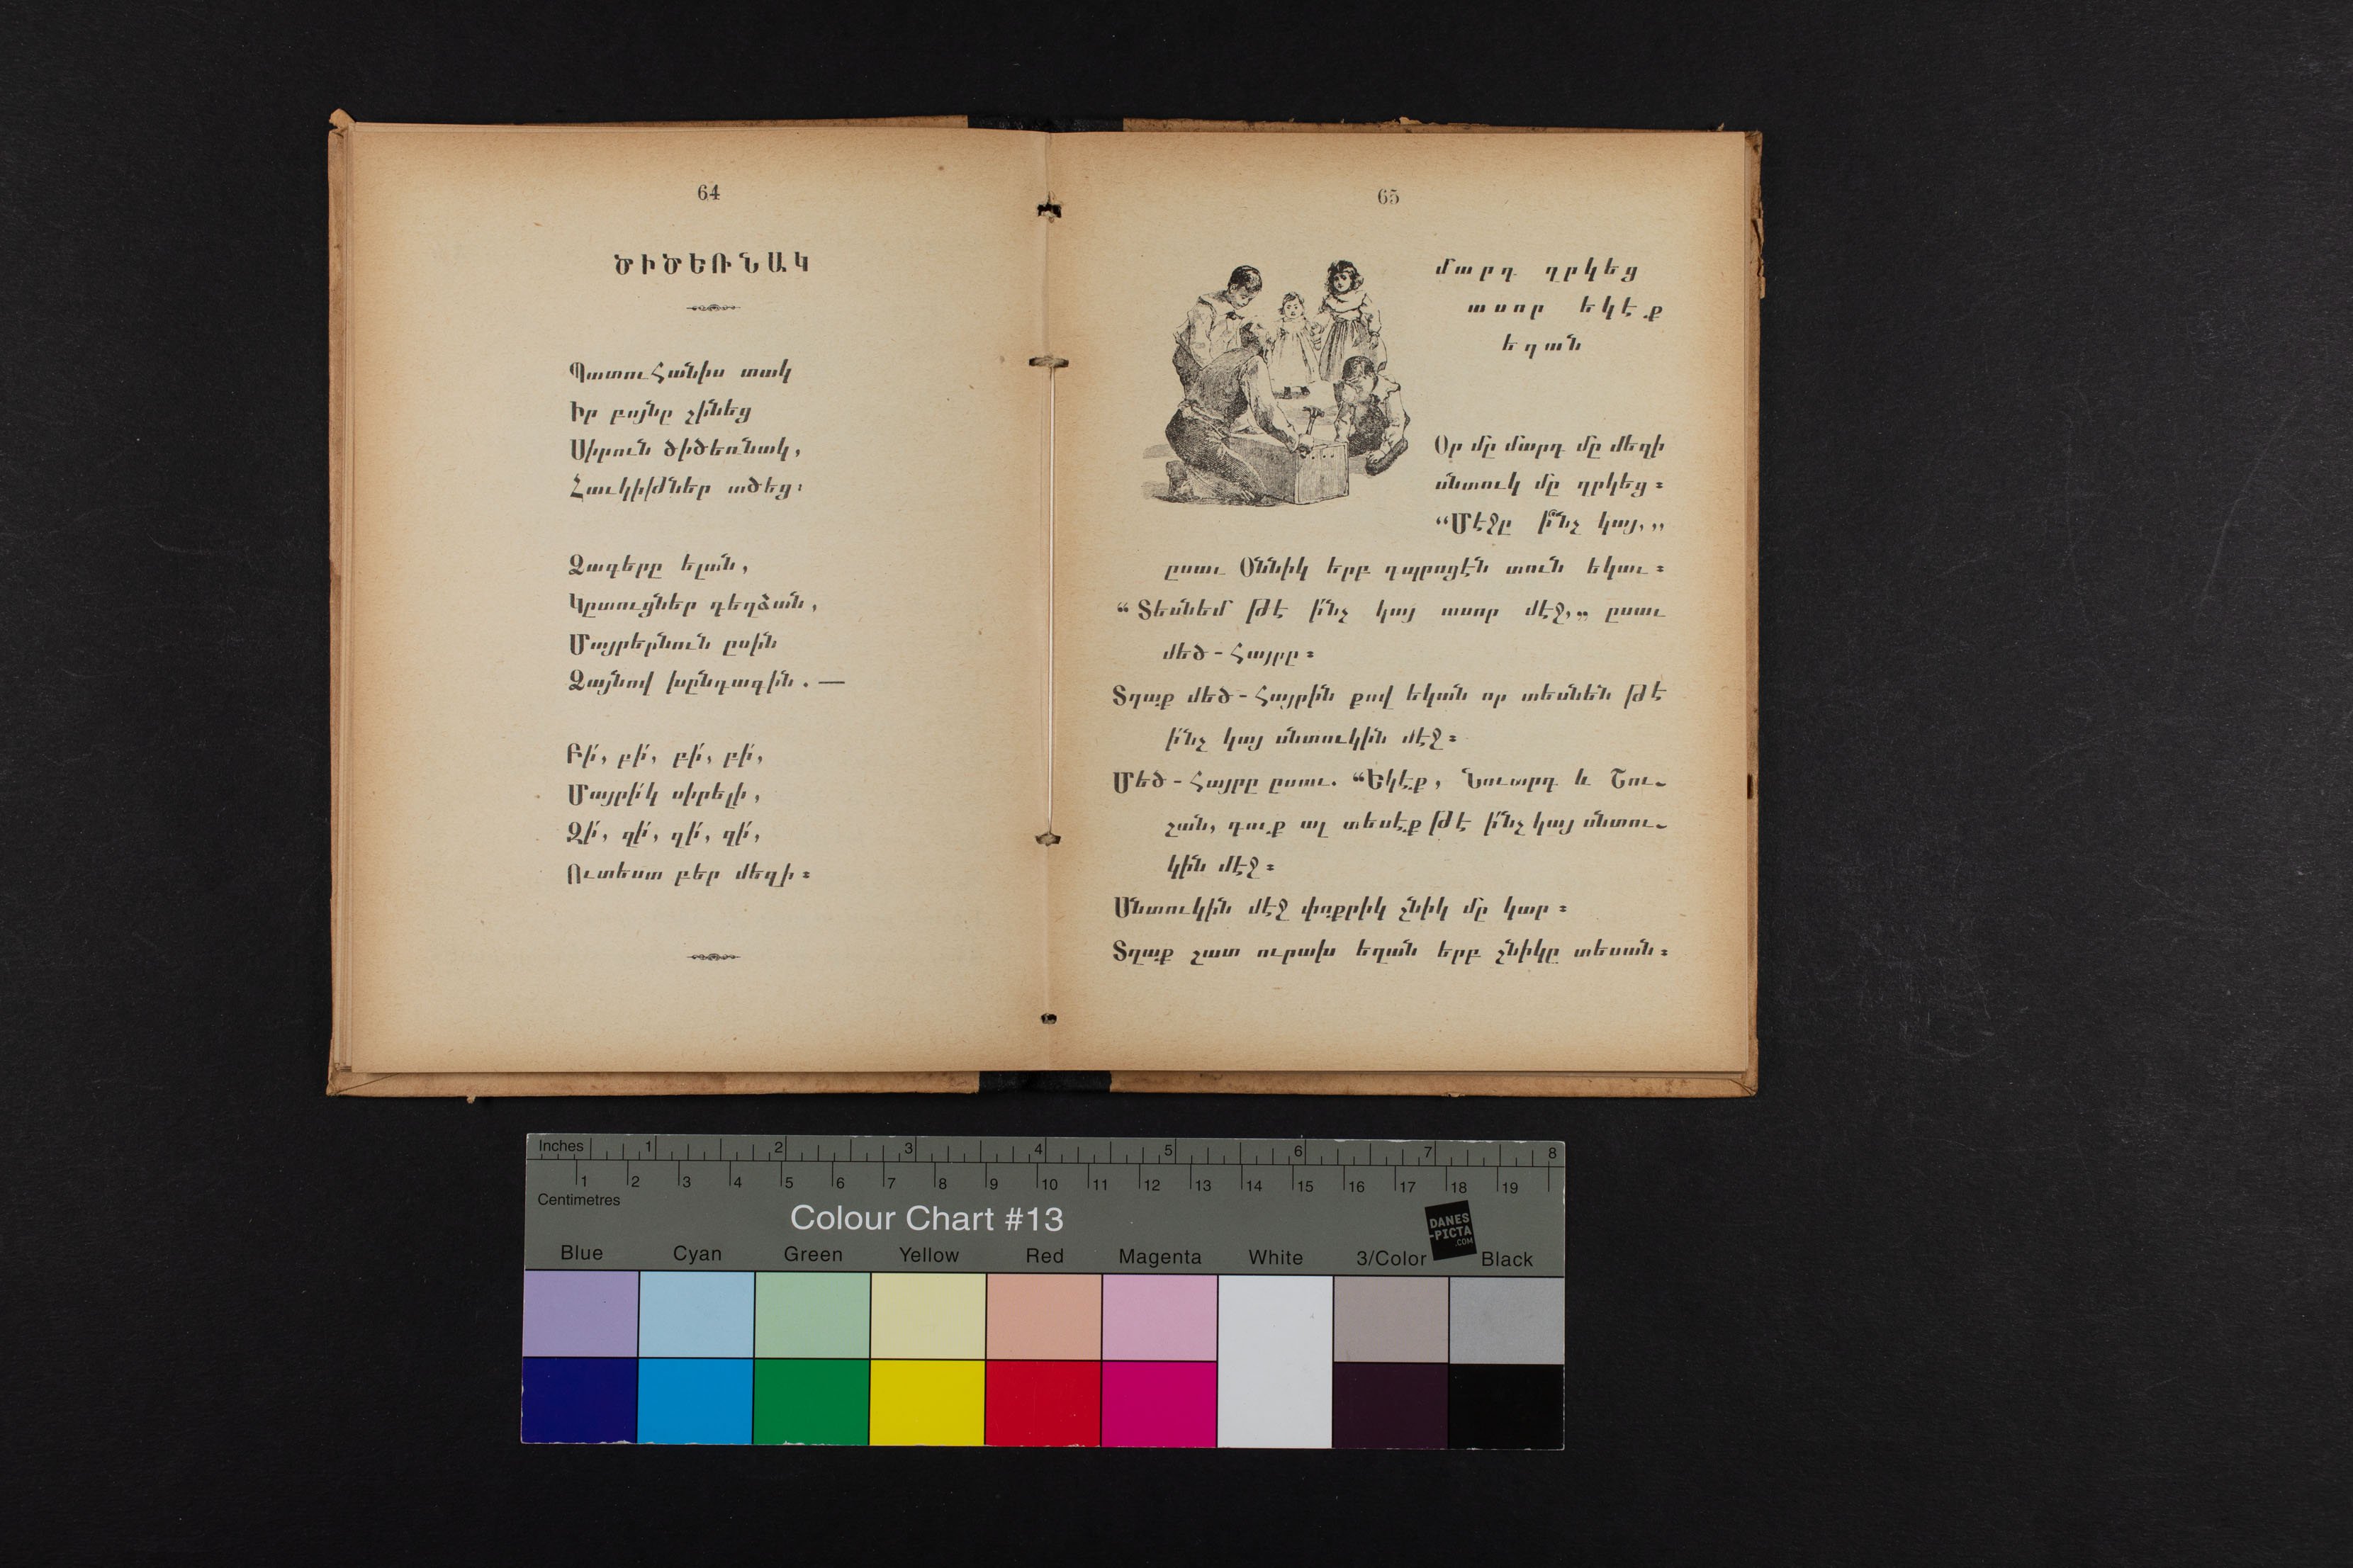 64
ԾԻԾԵՌՆԱԿ
Պատուհանիս տակ
Իր բոյնը շինեց
Սիրուն ծիծեռնակ,
Հաւկիթներ ածեց։
Ձագերը ելան,
Կըտուցներ դեղձան,
Մայրերնուն ըսին
Ձայնով խընդագին. —
Բի՛, բի՛, բի՛, բի՛,
Մայրի՛կ սիրելի,
Զի՛, զի՛, զի՛, զի՛,
Ուտեստ բեր մեզի։
65
մարդ ղրկեց
ասոր եկէք
եղան
Օր մը մարդ մը մեզի
սնտուկ մը ղրկեց։
“Մէջը ի՞նչ կայ,,,
ըսաւ Օննիկ երբ դպրոցէն տուն եկաւ։
“Տեսնեմ թէ ի՛նչ կայ ասոր մէջ,„ ըսաւ
մեծ-հայրը։
Տղաք մեծ-հայրին քով եկան որ տեսնեն թէ
ի՛նչ կայ սնտուկին մէջ։
Մեծ-հայրը ըսաւ. “Եկէք, Նուարդ և Շու-
շան, դուք ալ տեսէք թէ ի՛նչ կայ սնտու-
կին մէջ։
Սնտուկին մէջ փոքրիկ շնիկ մը կար։
Տղաք շատ ուրախ եղան երբ շնիկը տեսան։
Inches 1 2 3 4 5 6 7 8
1 2 3 4 5 6 7 8 9 10 11 12 13 14 15 16 17 18 19
Centimetres
Colour Chart #13
DANES
-PICTA
.COM
Blue Cyan Green Yellow Red Magenta White 3/Color Black